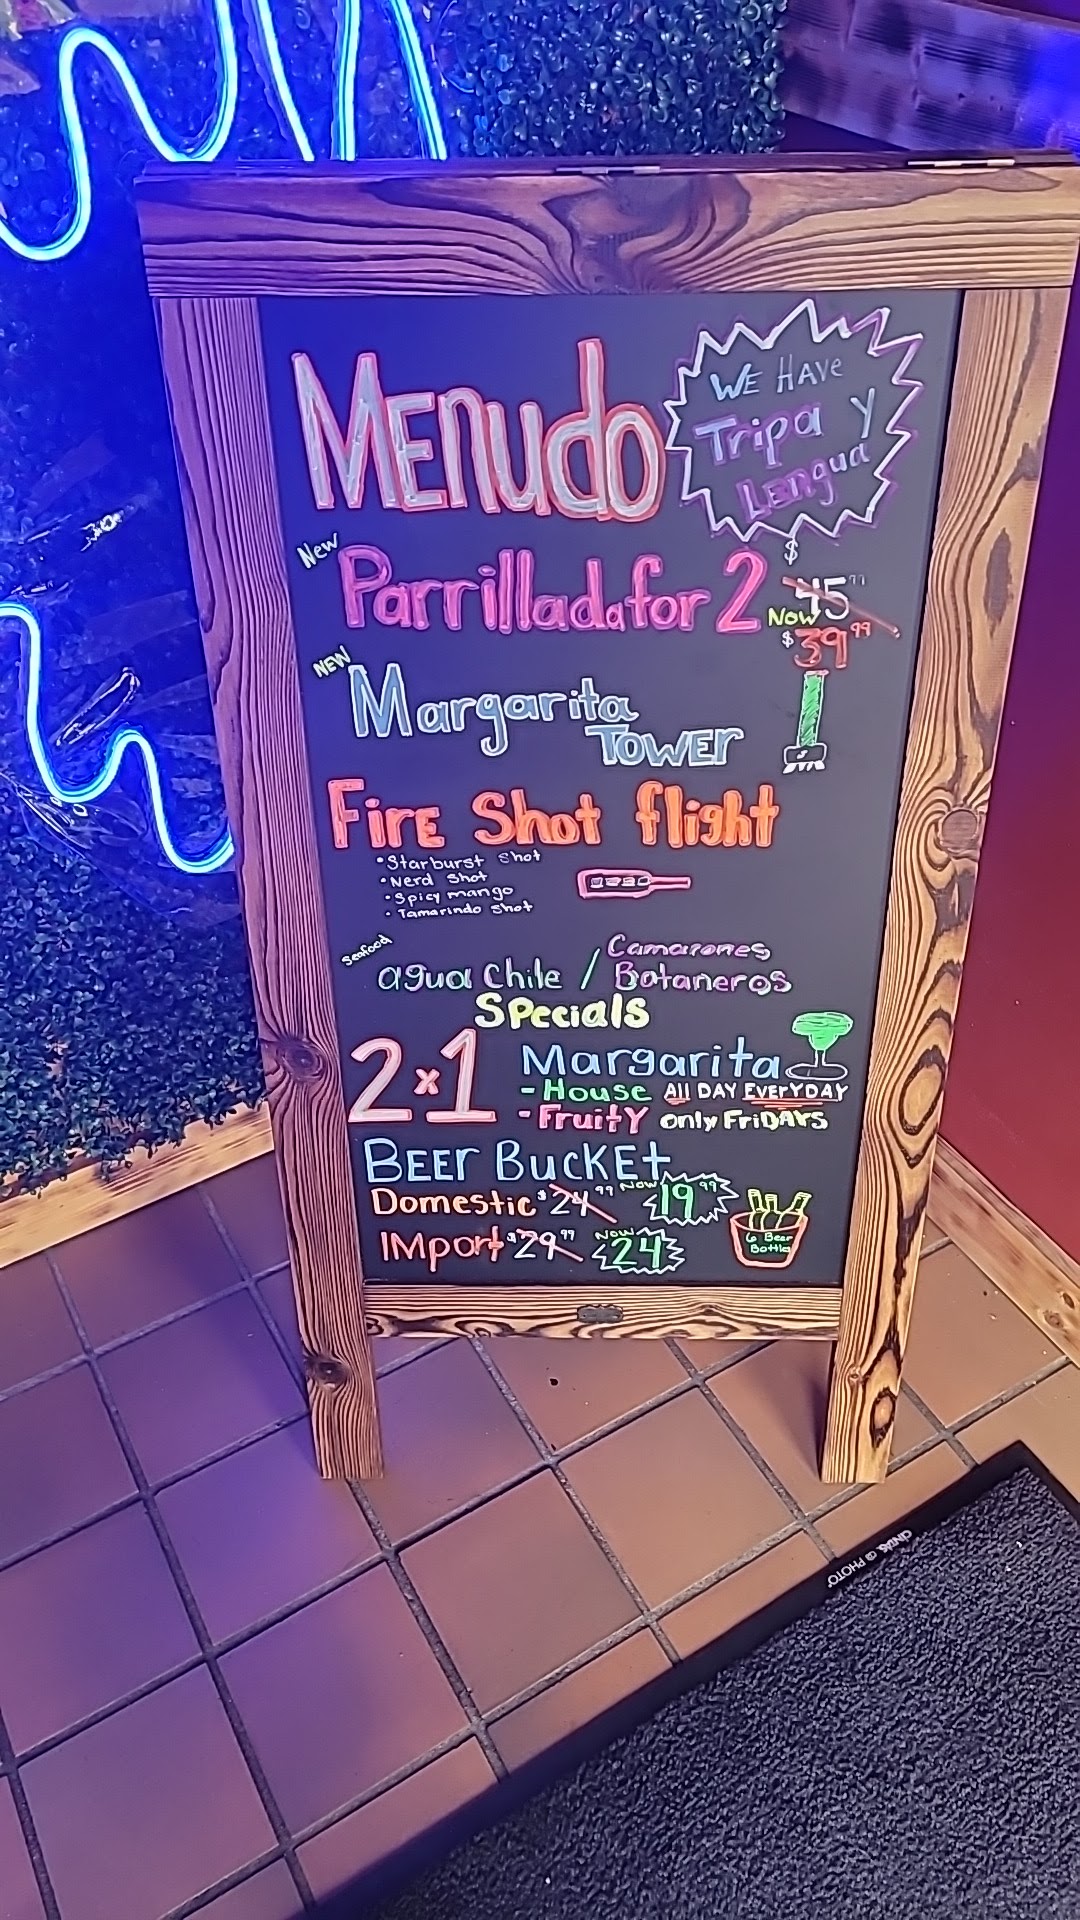 Menudo
WE HAVE
Tripa Y
Lengua
New
Parrillada for 2
$45.99
NOW
$39.99
NEW
Margarita
TOWER
FIRE Shot flight
• Starburst shot
• Nerd shot
• Spicy mango
• Tamarindo shot
seafood
agua Chile / Camarones
Botaneros
Specials
2x1 Margarita
- House All DAY EVERYDAY
- Fruity only FriDAYS
BEER BucKEt
Domestic $24.99 NOW 19.99
IMport $29.99 NOW 24
6 Beer
Bottles